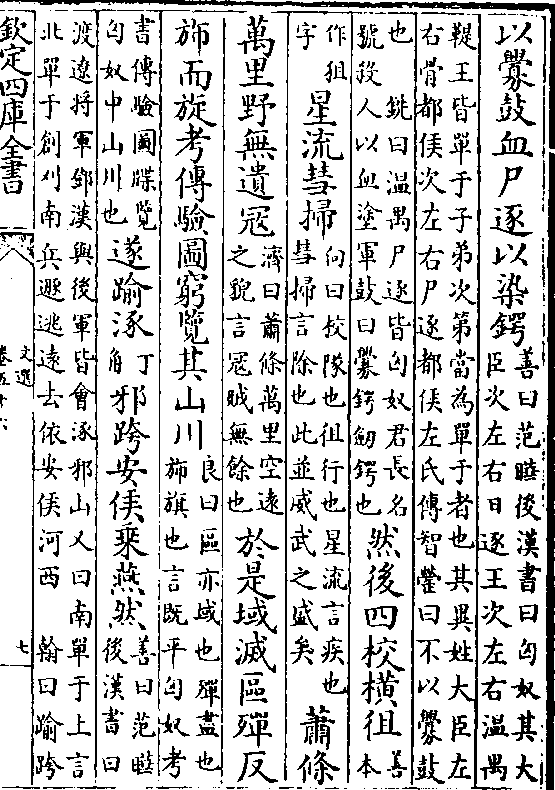 以釁鼓血尸逐以染鍔善曰范曄後漢書曰匈奴其大臣次左右日逐王次左右温禺
鞮王皆單于子弟次第當為單于者也其異姓大臣左右骨都侯次左右尸逐都侯左氏傳智罃曰不以釁鼓
也 銑曰温禺尸逐皆匈奴君長名號殺人以血塗軍鼓曰釁鍔劒鍔也然後四校橫徂善本
作狙字星流彗掃向曰校隊也徂行也星流言疾也彗掃言除也此並威武之盛矣蕭條
萬里野無遺寇濟曰蕭條萬里空逺之貌言寇賊無餘也於是域滅區殫反
斾而旋考傳驗圖窮覽其山川良曰區亦域也殫盡也斾旗也言既平匈奴考
書傳驗圖牒覽匈奴中山川也遂踰涿丁角邪跨安侯乗燕然善曰范曄後漢書曰
渡遼将軍鄧漢與後軍皆會涿邪山又曰南單于上言北單于創刈南兵遯逃逺去依安侯河西 翰曰踰跨
欽定四庫全書
文選
卷五十六
七